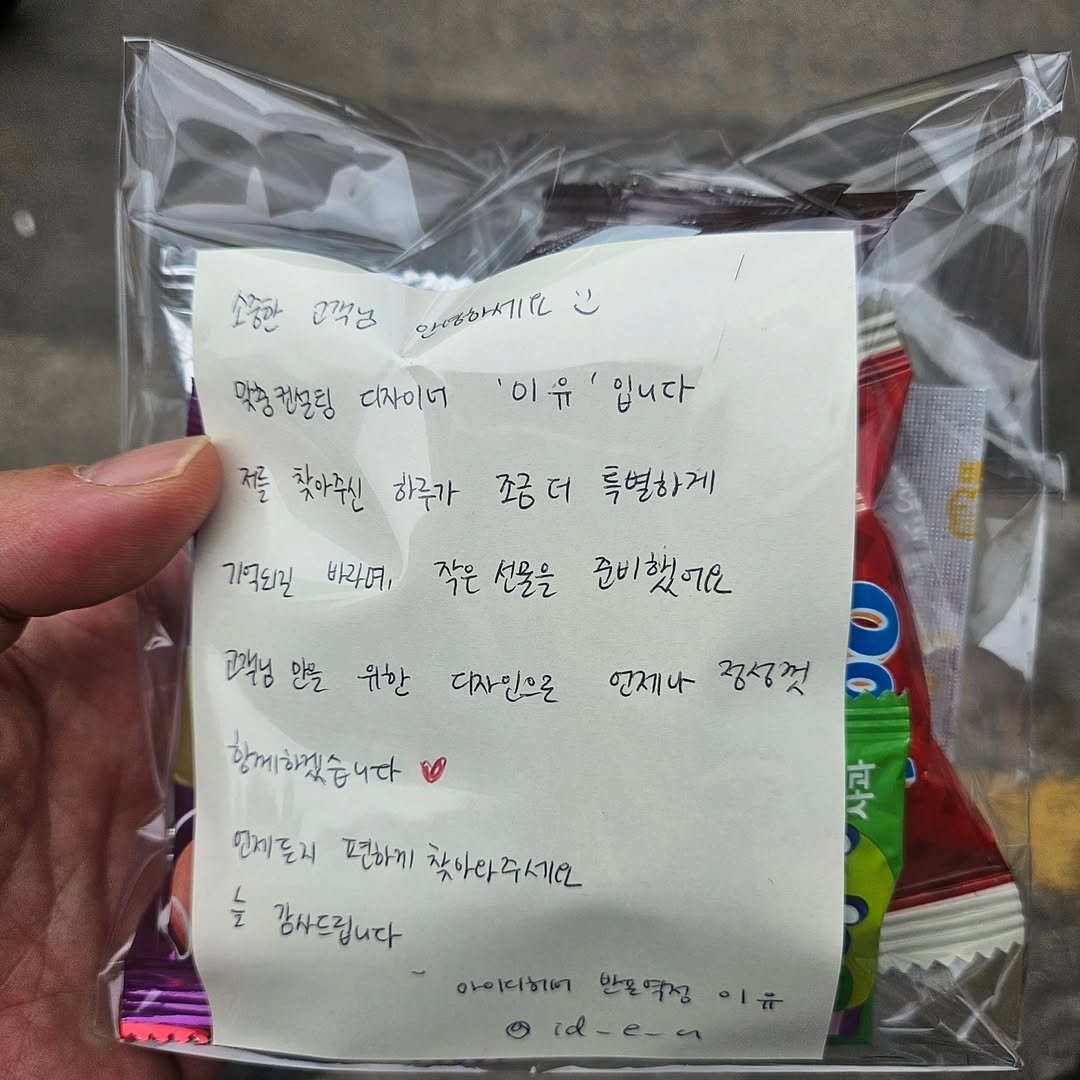 소중한 고객님 안녕하세요 :)
맞춤컨설팅 디자이너 '이유' 입니다
저를 찾아주신 하루가 조금 더 특별하게
기억되길 바라며, 작은 선물을 준비했어요
고객님 만을 위한 디자인으로 언제나 정성껏
함께하겠습니다 ♥
언제든지 편하게 찾아와주세요
늘 감사드립니다
~ 아이디헤어 반포역점 이유
@ id_e_u
사과